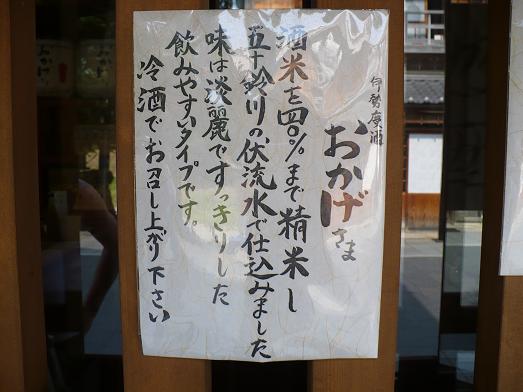 伊勢慶酒
おかげさま
酒米を四〇%まで精米し
五十鈴川の伏流水で仕込みました
味は淡麗ですっきりした
飲みやすいタイプです。
冷酒でお召し上がり下さい
おかげ